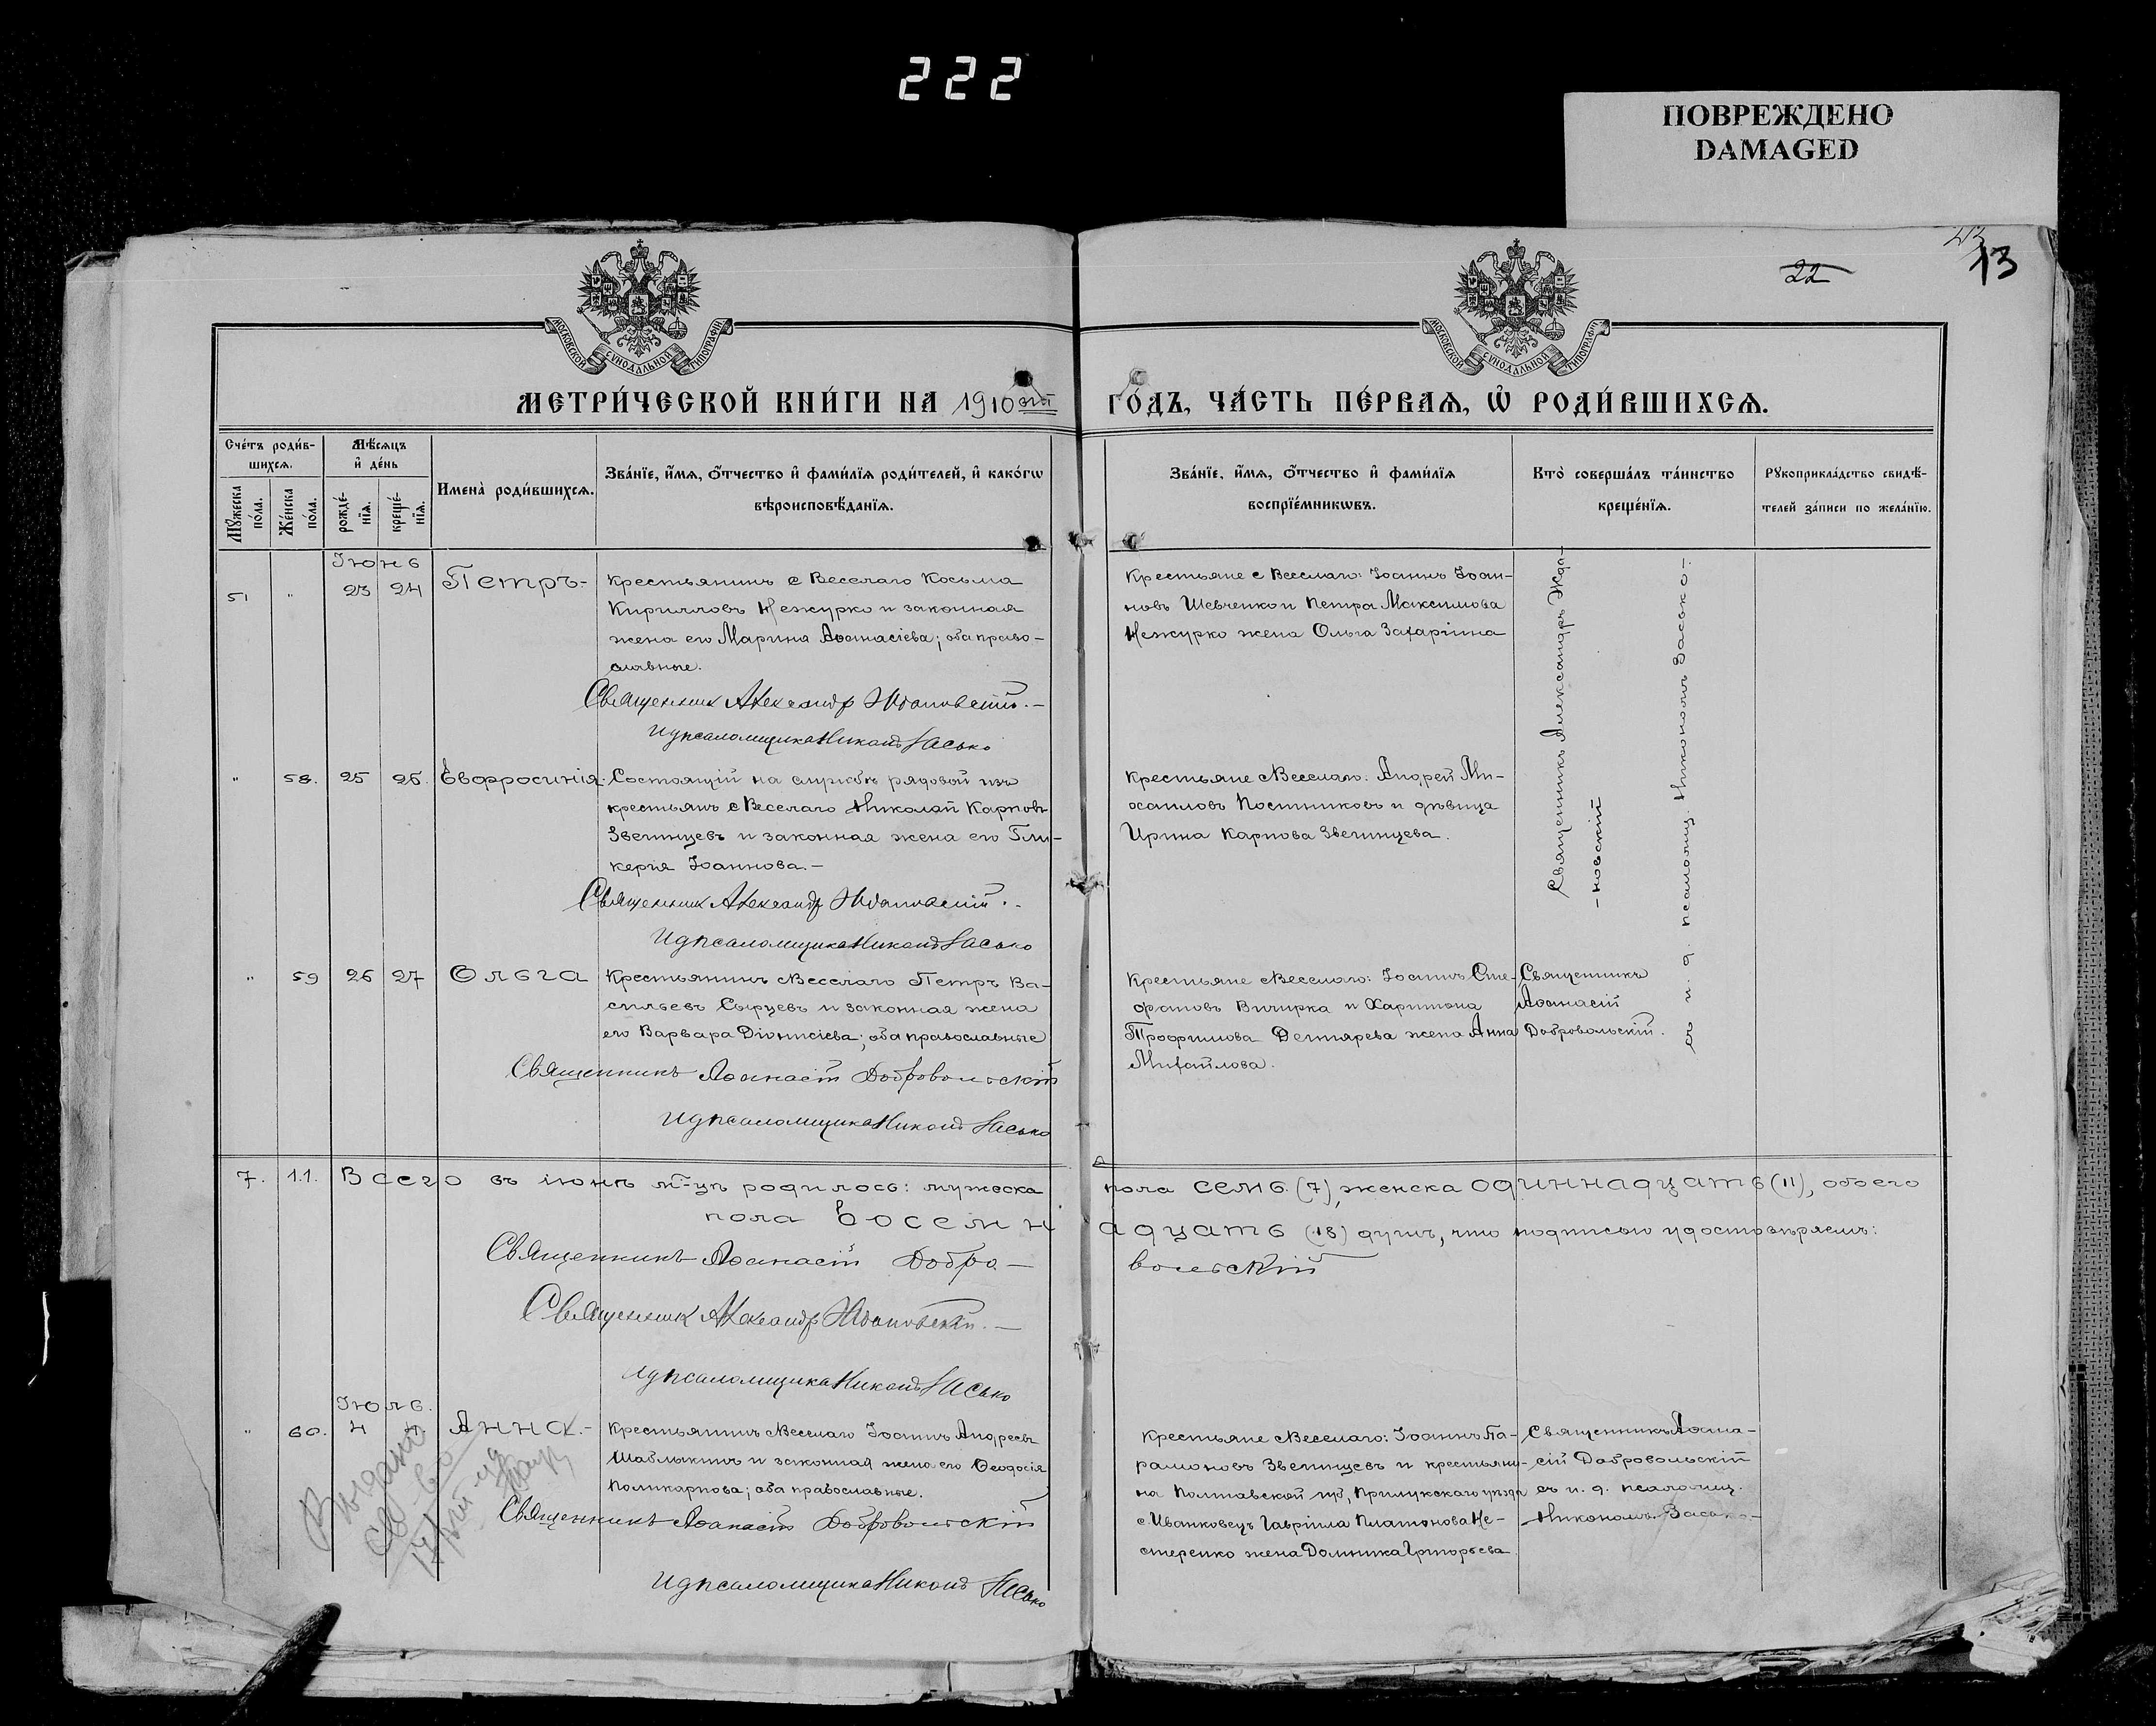 222
ПОВРЕЖДЕНО
DAMAGED
22
13
МОСКОВСКОЙ СѴНОДАЛЬНОЙ ТИПОГРАФІИ
МОСКОВСКОЙ СѴНОДАЛЬНОЙ ТИПОГРАФІИ
МЕТРИ́ЧЕСКОЙ КНИ́ГИ НА 1910 ый ГО́ДЪ, ЧА́СТЬ ПЕ́РВАѦ, Ѡ҆ РОДИ́ВШИХСѦ.
Сче́тъ роди́в-
шихсѧ.
Мꙋ́жеска по́ла.
Же́нска по́ла.
Мѣ́сѧцъ
и҆ де́нь
рожде́-
нїѧ.
креще́-
нїѧ.
Имена̀ роди́вшихсѧ.
Зва́нїе, и҆́мѧ, ѻ҆́тчество и҆ фами́лїѧ роди́телей, и҆ како́гѡ
вѣроисповѣ́данїѧ.
Зва́нїе, и҆́мѧ, ѻ҆́тчество и҆ фами́лїѧ
воспрїе́мникѡвъ.
Кто̀ соверша́лъ та́инство
креще́нїѧ.
Рꙋкоприкла́дство свидѣ́-
телей за́писи по жела́нїю.
Іюнь
51 " 23 24 Петръ.-
Крестьянинъ с Веселаго Косьма
Кирилловъ Нежурко и законная
жена его Марина Аѳанасіева; оба право-
славные.
Священник Александр Ждановский.-
И д псаломщика Никонъ Засько
Крестьяне с Веселаго: Іоаннъ Іоан-
новъ Шевченко и Петра Максимова
Нежурко жена Ольга Захаріина
Священникъ Александръ Ждa-
-новскій
съ и. д. псаломщ Никономъ Засько-.
" 58. 25 26. Евфросинія.
Состоящій на службѣ рядовой изъ
крестьянъ с Веселаго Николай Карповъ
Звегинцевъ и законная жена его Гли-
керія Іоаннова.-
Священник Александр Ждановскій.-
И д псаломщика Никонъ Засько
Крестьяне с Веселаго: Андрей Ми-
саиловъ Постниковъ и дѣвица
Ирина Карпова Звегинцева.
" 59 26 27 Ольга
Крестьянинъ с Веселаго Петръ Ва-
сильевъ Сырцевъ и законная жена
его Варвара Діонисіева; оба православные
Священникъ Аѳанасій Добровольскій
И д псаломщика Никонъ Засько
Крестьяне с Веселаго: Іоаннъ Сте-
фановъ Вичирка и Харитона
Трофимова Дегтярева жена Анна
Михайлова.
Священникъ
Аѳанасій
Добровольскій.
7. 11. Всего въ іюнѣ м-цѣ родилось: мужеска пола семь (7), женска одиннадцать (11), обоего
пола восемнадцать (18) душъ, что подписью удостовѣряемъ:
Священникъ Аѳанасій Добро-вольскій
Священник Александр Ждановский.-
И д псаломщика Никонъ Засько
Іюль.
" 60. 4 Анна.-
Крестьянинъ с Веселаго Іоаннъ Андреевъ
Шаблыкинъ и законная жена его Ѳеодосія
Поликарпова; оба православные.
Священникъ Аѳанасій Добровольскій
И д псаломщика Никонъ Засько
Крестьяне с Веселаго: Іоаннъ Па-
рамоновъ Звегинцевъ и крестьяни-
на Полтавской губ, Прилукскаго уѣзда
с. Иванковецъ Гавріила Платонова Не-
стеренко жена Домника Григорьева.
Священникъ Аѳана-
сій Добровольскій
съ и. д. псаломщ.
Никономъ Засько-
Выдано
св-во